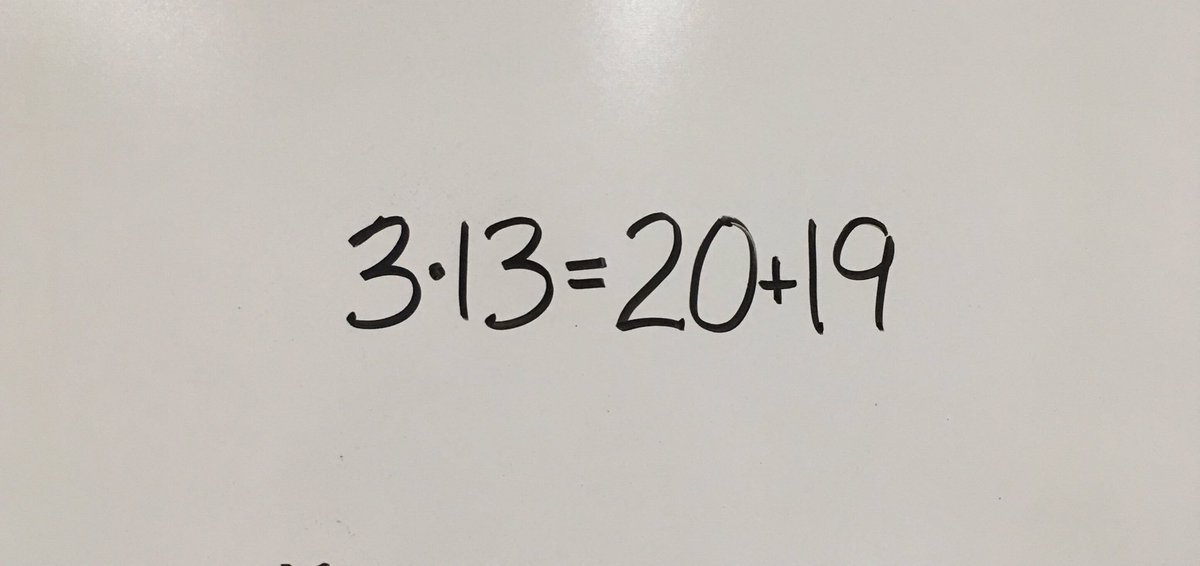 3·13=20+19